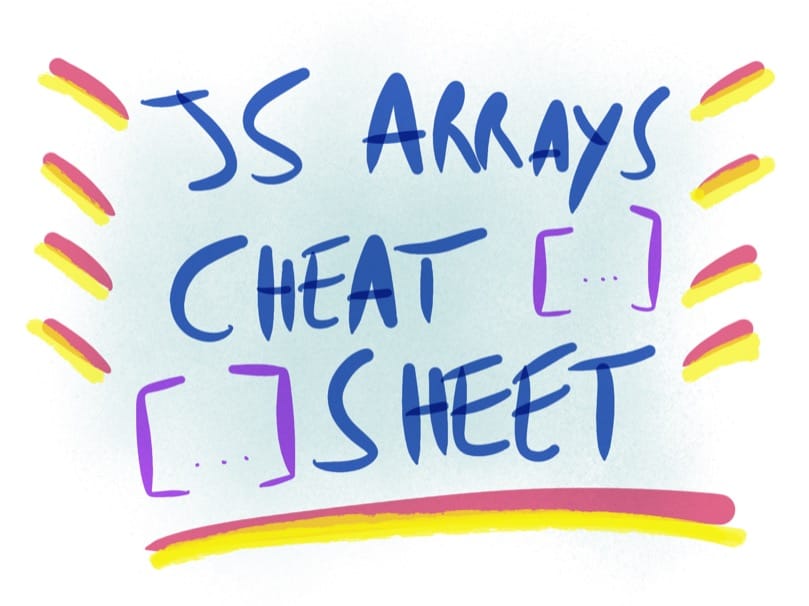 JS ARRAYS
CHEAT [...]
[...] SHEET